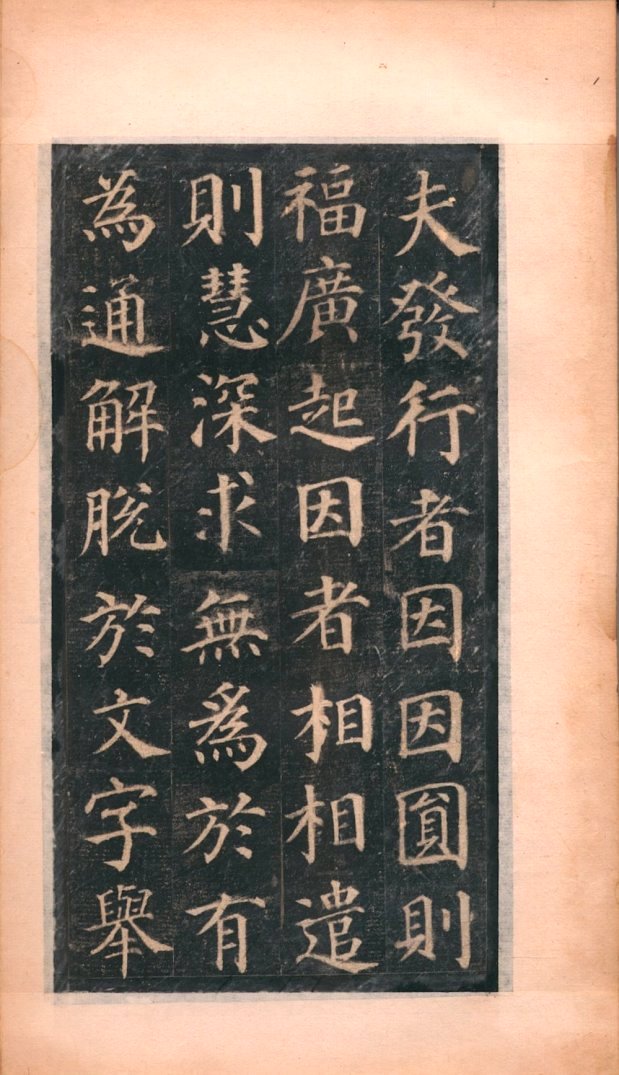 夫發行者因因圎則
福廣起因者相相遣
則慧深求無爲於有
為通解脫於文字舉